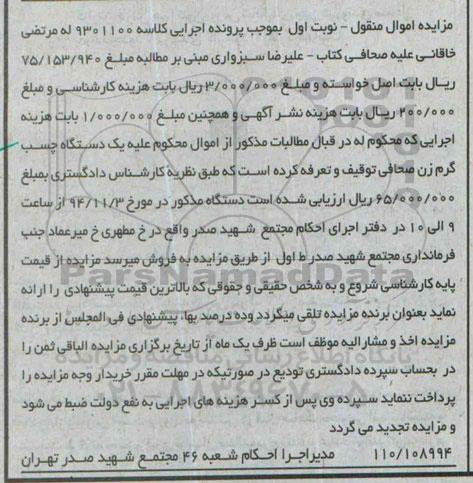 مزایده اموال منقول - نوبت اول بموجب پرونده اجرایی کلاسه ۹۳۰۱۱۰۰ له مرتضی
خاقانی علیه صحافی کتاب - علیرضا سبزواری مبنی بر مطالبه مبلغ ۷۵/۱۵۳/۹۴۰
ریال بابت اصل خواسته و مبلغ ۳/۰۰۰/۰۰۰ ریال بابت هزینه کارشناسی و مبلغ
۲۰۰/۰۰۰ ریال بابت هزینه نشر آگهی و همچنین مبلغ ۱/۰۰۰/۰۰۰ بابت هزینه
اجرایی که محکوم له در قبال مطالبات مذکور از اموال محکوم علیه یک دستگاه چسب
گرم زن صحافی توقیف و تعرفه کرده است که طبق نظریه کارشناس دادگستری بمبلغ
۶۵/۰۰۰/۰۰۰ ریال ارزیابی شده است دستگاه مذکور در مورخ ۹۴/۱۱/۳ از ساعت
۹ الی ۱۰ در دفتر اجرای احکام مجتمع شهید صدر واقع در خ مطهری خ میرعماد جنب
فرمانداری مجتمع شهید صدر ط اول از طریق مزایده به فروش میرسد مزایده از قیمت
پایه کارشناسی شروع و به شخص حقیقی و حقوقی که بالاترین قیمت پیشنهادی را ارائه
نماید بعنوان برنده مزایده تلقی میگردد وده درصد بها، پیشنهادی فی المجلس از برنده
مزایده اخذ و مشارالیه موظف است ظرف یک ماه از تاریخ برگزاری مزایده الباقی ثمن را
در بحساب سپرده دادگستری تودیع در صورتیکه در مهلت مقرر خریدار وجه مزایده را
پرداخت ننماید سپرده وی پس از کسر هزینه های اجرایی به نفع دولت ضبط می شود
و مزایده تجدید می گردد
۱۱۰/۱۰۸۹۹۴ مدیراجرا احکام شعبه ۴۶ مجتمع شهید صدر تهران
ParsNamadData